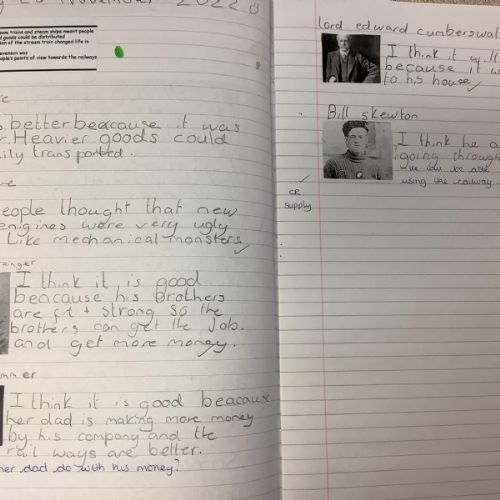 November 2022
eam trains and steam ships meant people
d goods could be distributed
tion of the stream train changed life in
evenson was
ople's points of view towards the railways
better beacause it was
r. Heavier goods could
ily transported.
eople thought that new
engines were very ugly
Like mechanical monsters
ranger
I think it is good
beacause his brothers
are fit + strong so the
brothers can get the Job.
and get more money.
mner
I think it is good beacaux
her dad is making more money
by his company and the
rail ways are better.
her dad do with his money?
Lord edward cumberswat
I think it will
because it w
to his house
Bill skewton
I think he a
going through
using the railway
CR
supply